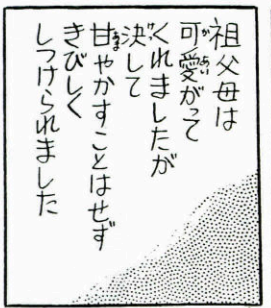 祖父母は
可愛がって
くれましたが
決して
甘やかすことはせず
きびしく
しつけられました